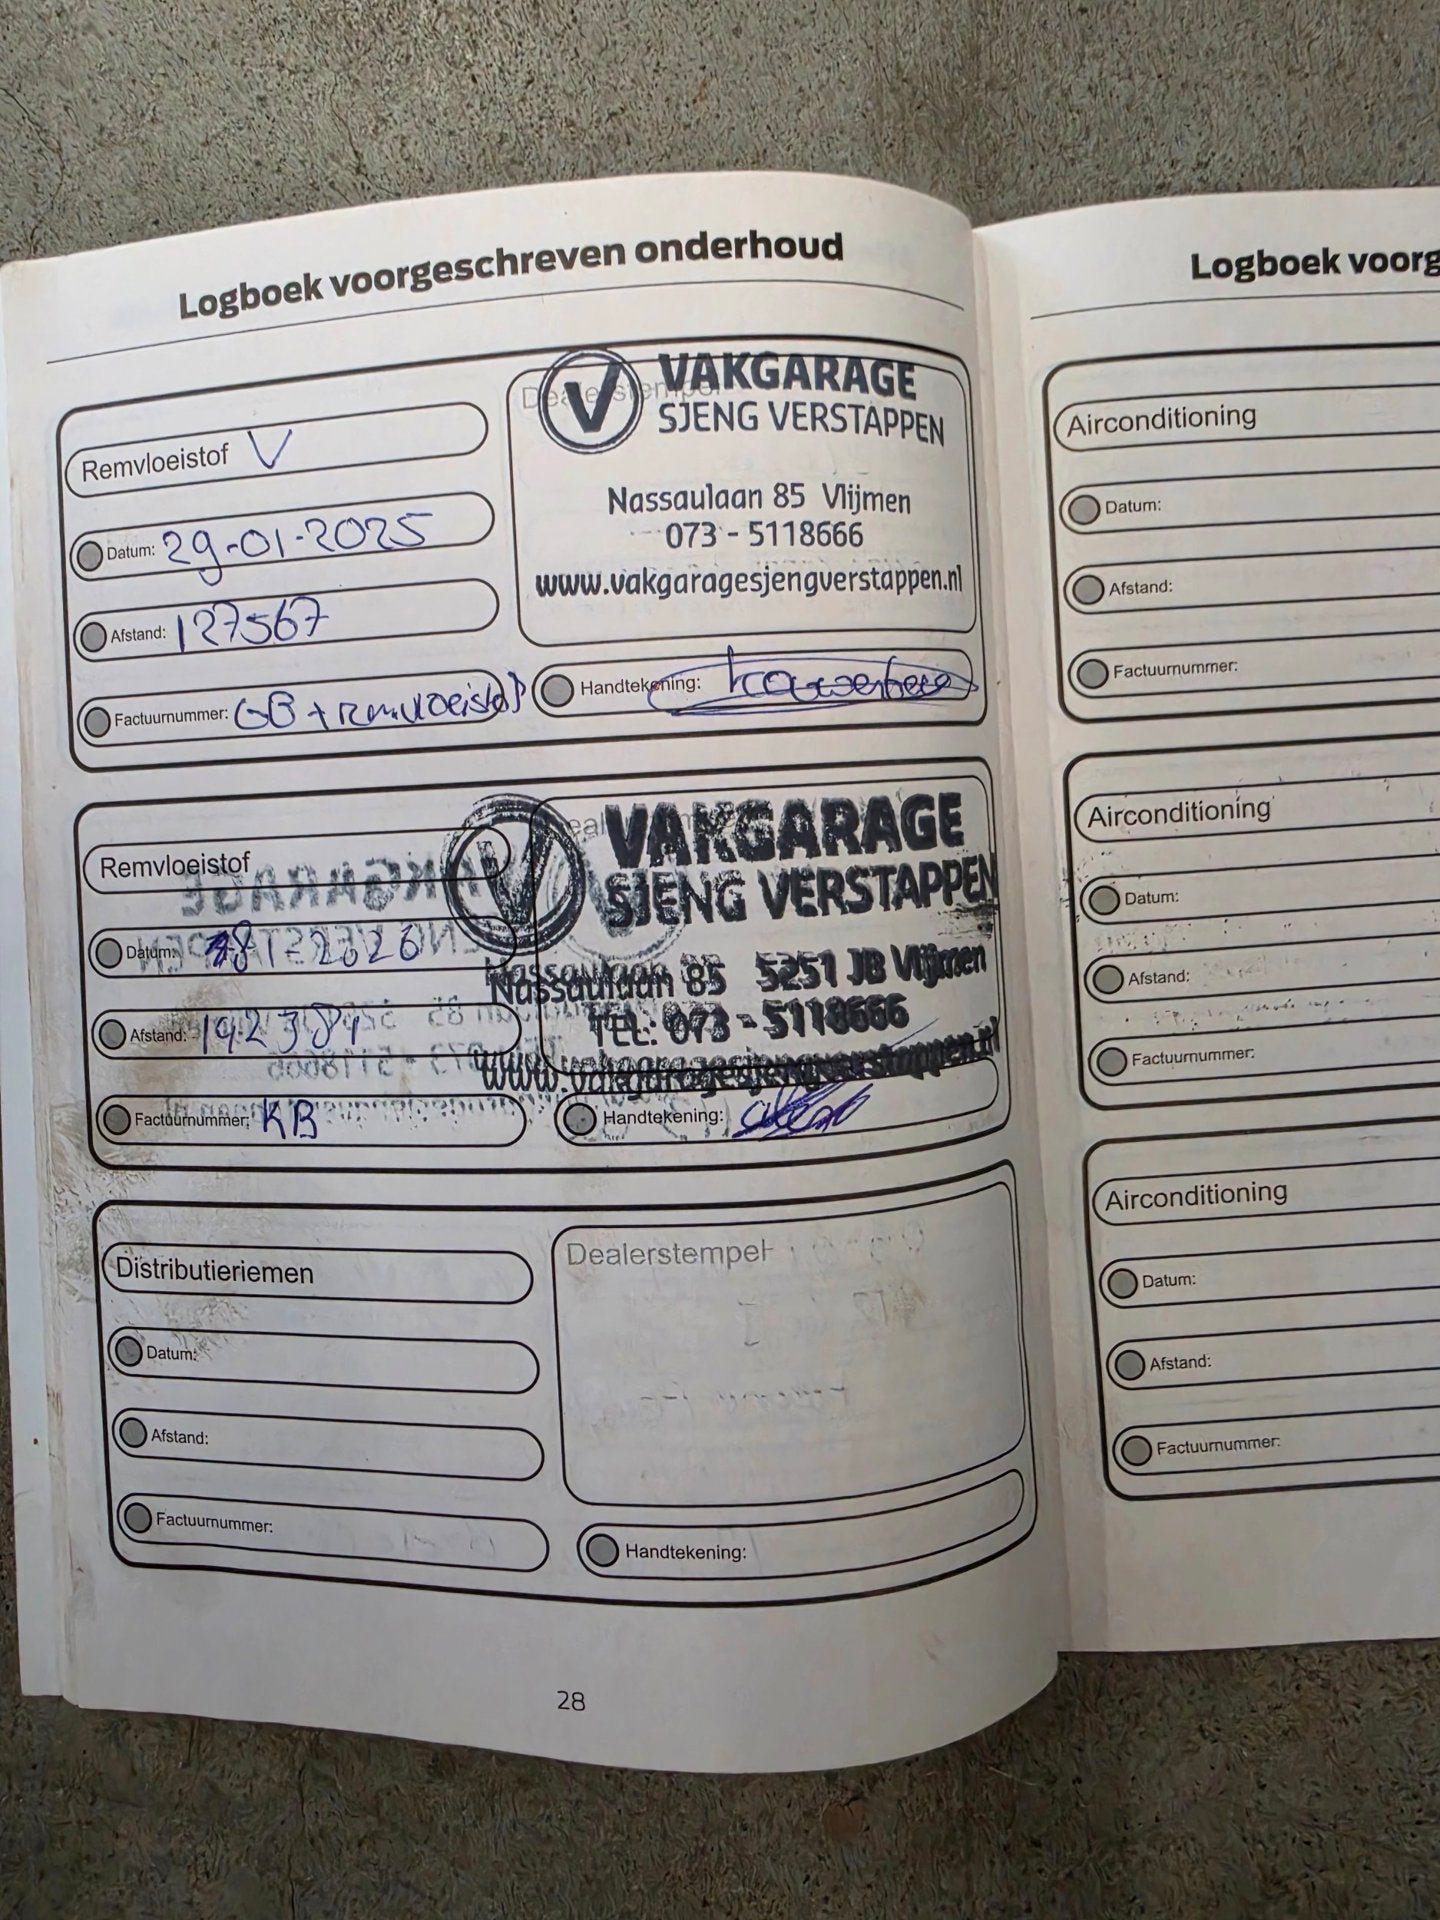 Logboek voorgeschreven onderhoud
Remvloeistof V
Datum: 29-01-2025
Afstand: 127567
Factuurnummer: GB + remvloeistof
Dealerstempel
VAKGARAGE
SJENG VERSTAPPEN
Nassaulaan 85 Vlijmen
073 - 5118666
www.vakgaragesjengverstappen.nl
Handtekening:
Remvloeistof
Datum:
Afstand: 142381
Factuurnummer: KB
VAKGARAGE
SJENG VERSTAPPEN
Nassaulaan 85 5251 JB Vlijmen
TEL: 073 - 5118666
www.vakgaragesjengverstappen.nl
Handtekening:
Distributieriemen
Datum:
Afstand:
Factuurnummer:
Dealerstempel
Handtekening:
28
Logboek voorg
Airconditioning
Datum:
Afstand:
Factuurnummer:
Airconditioning
Datum:
Afstand:
Factuurnummer:
Airconditioning
Datum:
Afstand:
Factuurnummer: